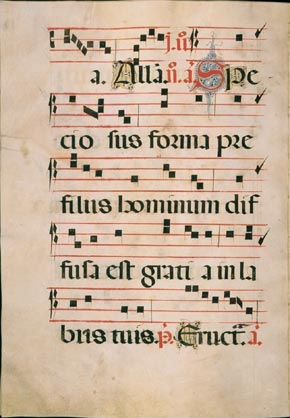 j. ii.
a. Alla. ii. a. Spe
cio sus forma pre
filiis hominum dif
fusa est grati a in la
biis tuis. p. Eruct. i.